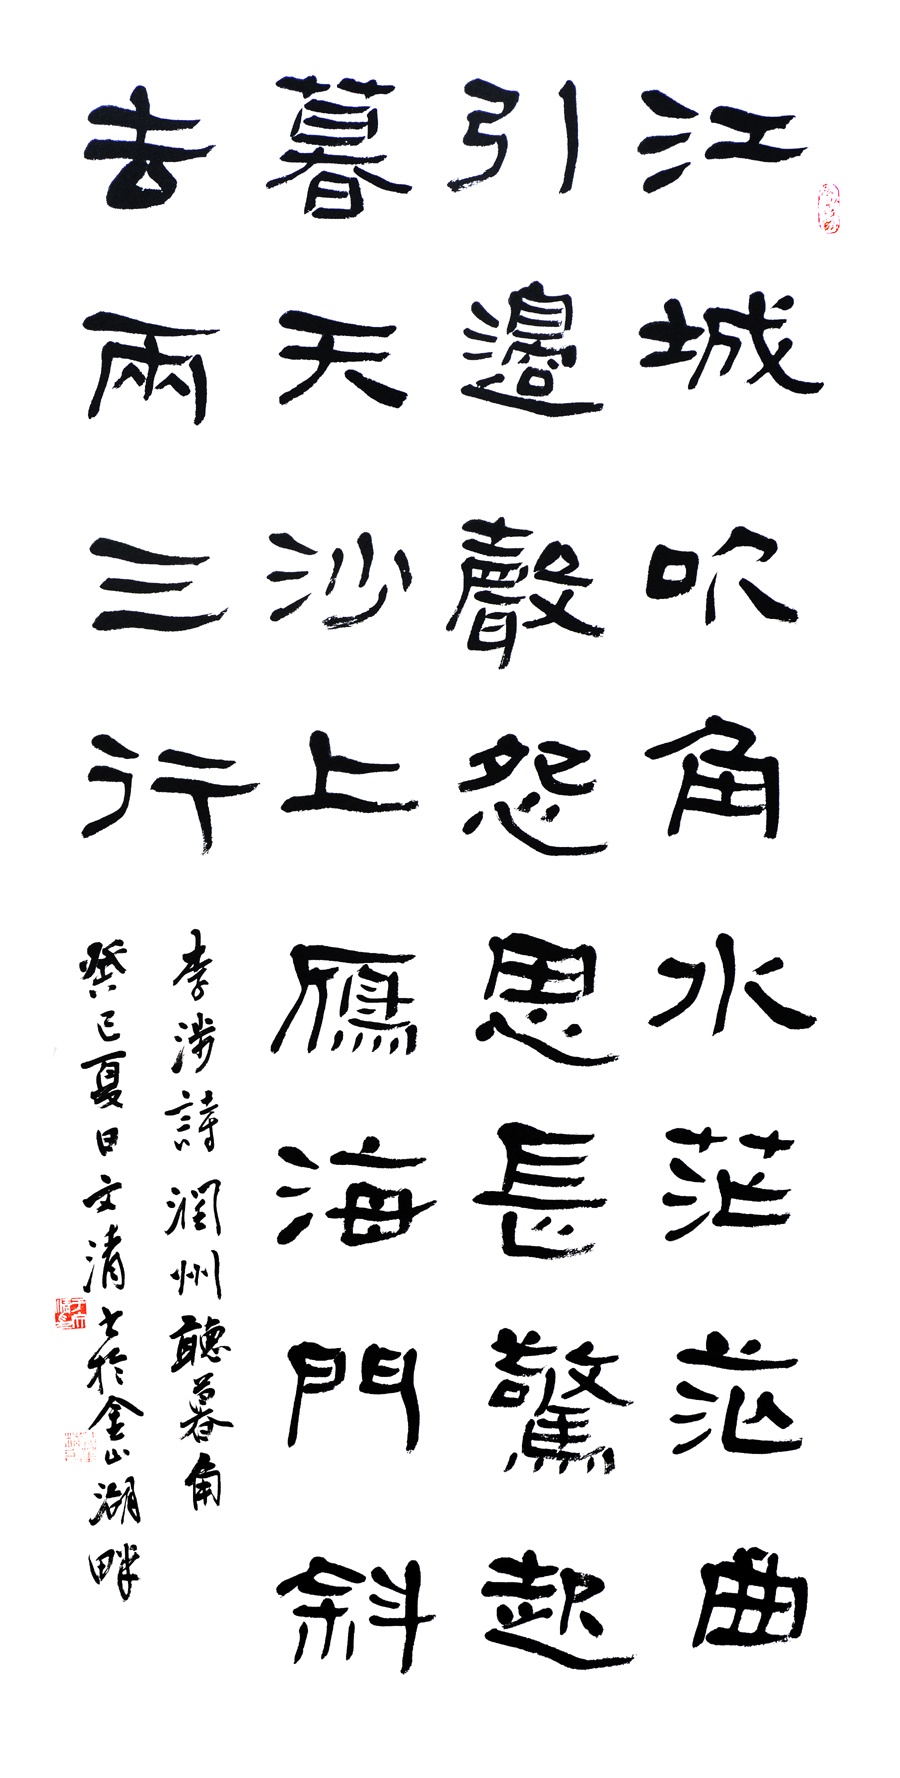 江城吹角水茫茫曲
引邊聲怨思長驚起
暮天沙上雁海門斜
去兩三行
李涉詩潤州聽暮角
癸巳夏日文清書於金山湖畔